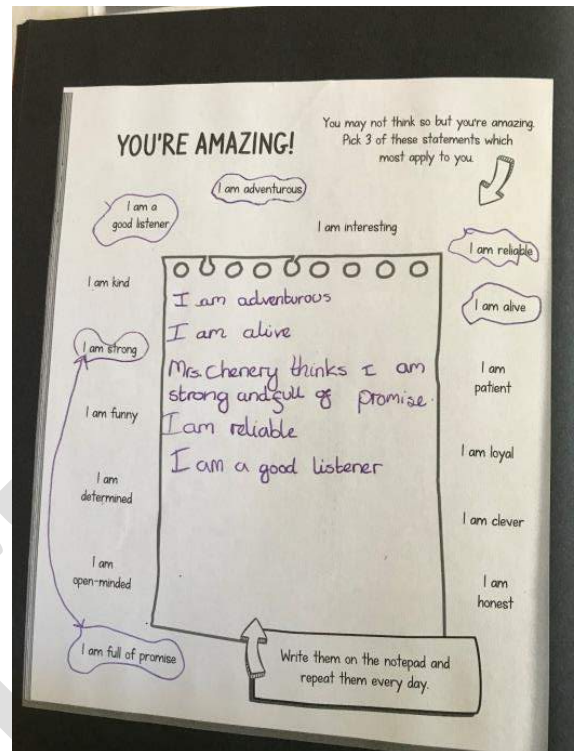 YOU'RE AMAZING!
You may not think so but you're amazing.
Pick 3 of these statements which
most apply to you
I am adventurous
I am a
good listener
I am interesting
I am reliable
I am kind
I am alive
I am strong
I am
patient
I am funny
I am loyal
I am
determined
I am clever
I am
open-minded
I am
honest
I am full of promise
I am adventurous
I am alive
Mrs Chenery thinks I am
strong and full of promise.
I am reliable
I am a good listener
Write them on the notepad and
repeat them every day.